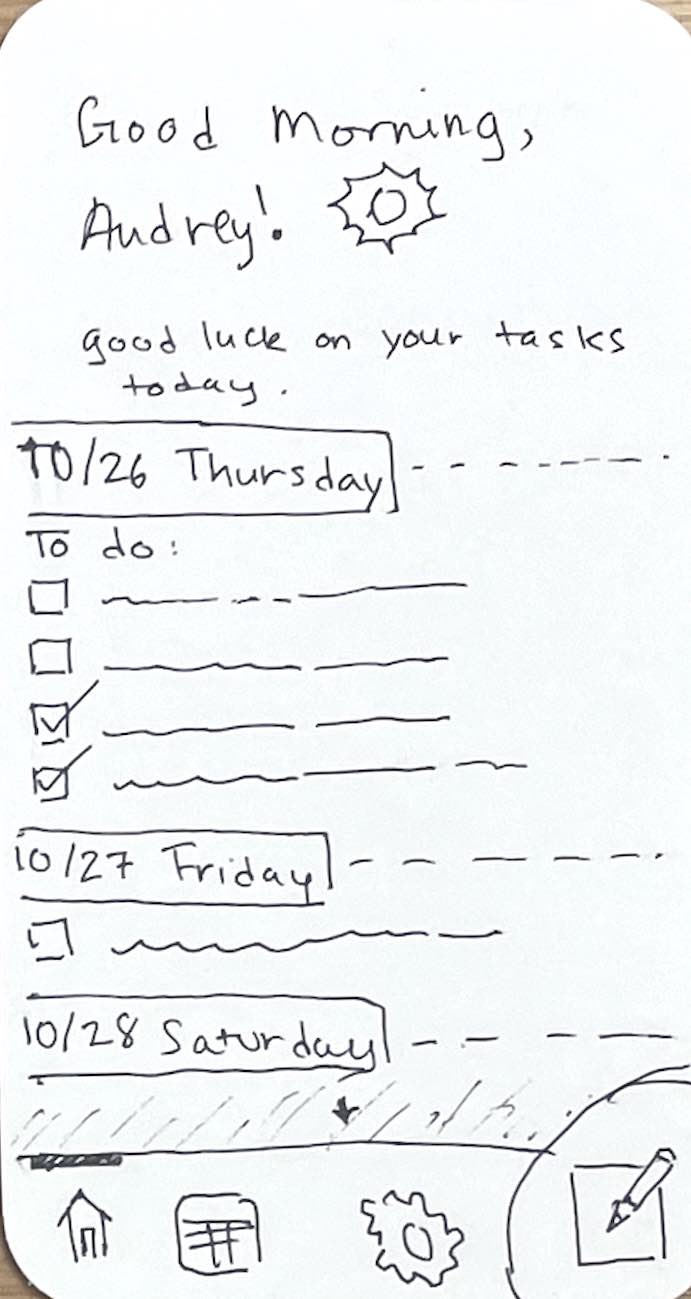 Good Morning,
Audrey!
good luck on your tasks
today.
10/26 Thursday
To do:
10/27 Friday
10/28 Saturday